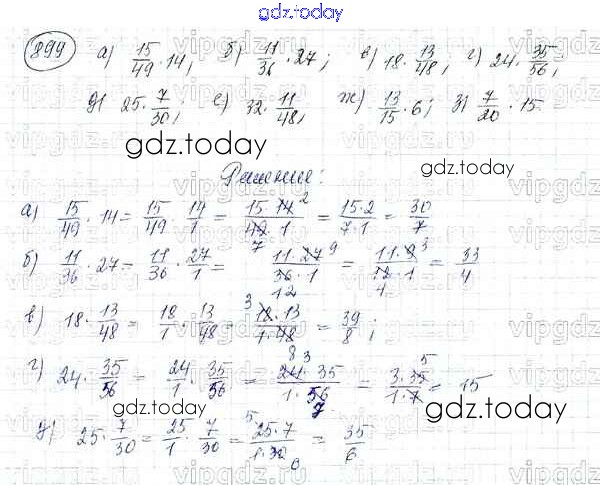 gdz.today
899 а) 15/49 · 14; б) 11/36 · 27; в) 18 · 13/48; г) 24 · 35/56;
д) 25 · 7/30; е) 32 · 11/48; ж) 13/15 · 6; з) 7/20 · 15.
gdz.today gdz.today
Решение:
а) 15/49 · 14 = 15/49 · 14/1 = 15·14/49·1 = 15·2/7·1 = 30/7
б) 11/36 · 27 = 11/36 · 27/1 = 11·27/36·1 = 11·9/12·1 = 33/4
в) 18 · 13/48 = 18/1 · 13/48 = 18·13/1·48 = 39/8;
г) 24 · 35/56 = 24/1 · 35/56 = 24·35/1·56 = 3·35/1·7 = 15
gdz.today gdz.today
д) 25 · 7/30 = 25/1 · 7/30 = 25·7/1·30 = 35/6